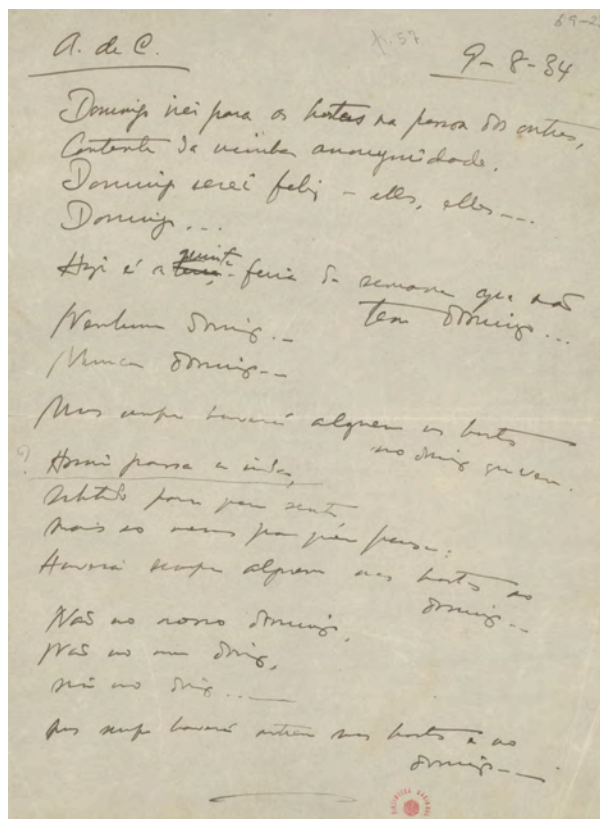 A. de C.
9-8-34
Domingo irei para as hortas na pessoa dos outros,
Contente da minha anonymidade.
Domingo serei feliz – elles, elles...
Domingo...
Hoje é a quinta-feira da semana que não
tem domingo...
Nenhum domingo...
Nunca domingo...
Mas sempre haverá alguem nas hortas
no domingo que vem.
Assim passa a vida,
Subtil para quem sente,
Mais ou menos para quem pensa:
Haverá sempre alguem nas hortas ao
domingo...
Não no nosso domingo,
Não no meu domingo,
Não no domingo...
Mas sempre haverá outros nas hortas e ao
domingo...